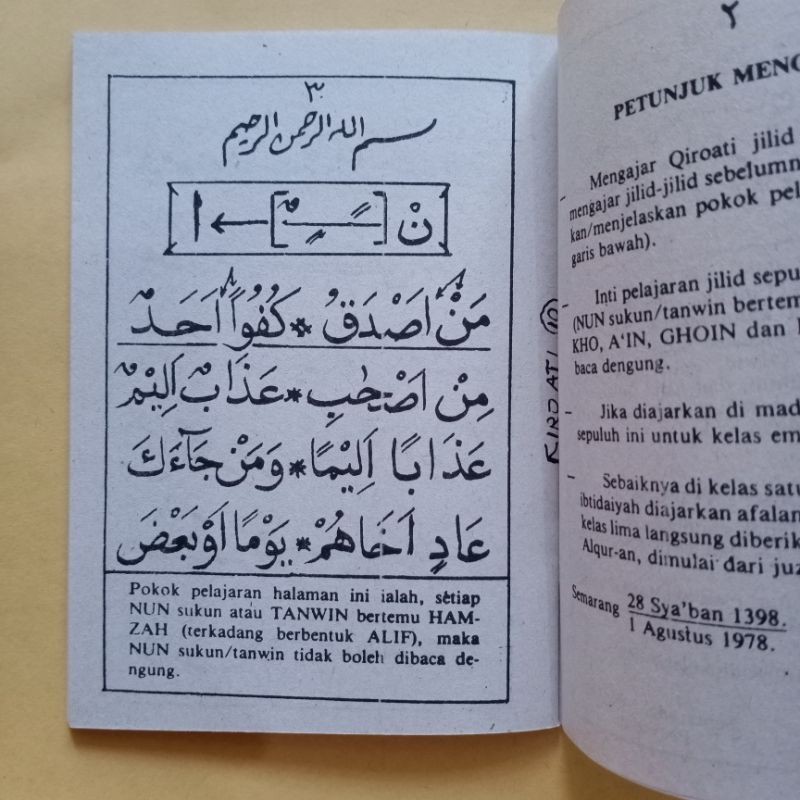 ٣
بسم الله الرحمن الرحيم
نْ [ ـًـٍـٌ ] ← ا
مَنْ اَصْدَقُ * كُفُوًا اَحَدٌ
مِنْ اَصْحٰبِ * عَذَابٌ اَلِيْمٌ
عَذَابًا اَلِيْمًا * وَمَنْ جَآءَكَ
عَادٍ اَخَاهُمْ * يَوْمًا اَوْبَعْضَ
Pokok pelajaran halaman ini ialah, setiap
NUN sukun atau TANWIN bertemu HAM-
ZAH (terkadang berbentuk ALIF), maka
NUN sukun/tanwin tidak boleh dibaca de-
ngung.
٢
PETUNJUK
- Mengajar Qiroati jilid
mengajar jilid-jilid sebelumn
kan/menjelaskan pokok pel
garis bawah).
- Inti pelajaran jilid sepu
(NUN sukun/tanwin bertem
KHO, A'IN, GHOIN dan
baca dengung.
- Jika diajarkan di mad
sepuluh ini untuk kelas em
- Sebaiknya di kelas satu
ibtidaiyah diajarkan afalan
kelas lima langsung diberik
Alqur-an, dimulai dari juz
Semarang 28 Sya'ban 1398.
1 Agustus 1978.